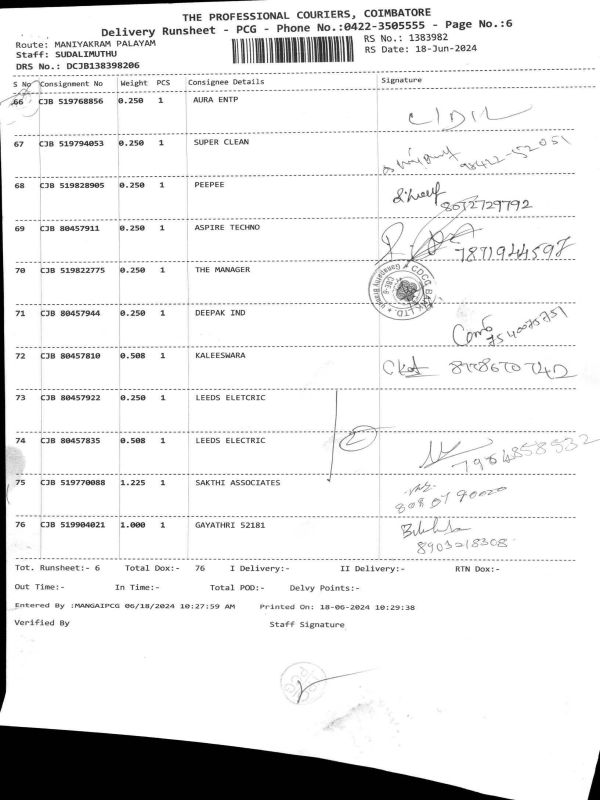 THE PROFESSIONAL COURIERS, COIMBATORE
Delivery Runsheet - PCG - Phone No.:0422-3505555 - Page No.:6
Route: MANIYAKRAM PALAYAM RS No.: 1383982
Staff: SUDALIMUTHU RS Date: 18-Jun-2024
DRS No.: DCJB138398206
S No Consignment No Weight PCS Consignee Details Signature
66 CJB 519768856 0.250 1 AURA ENTP
67 CJB 519794053 0.250 1 SUPER CLEAN 98422-52051
68 CJB 519828905 0.250 1 PEEPEE 8072729792
69 CJB 80457911 0.250 1 ASPIRE TECHNO 7871944597
70 CJB 519822775 0.250 1 THE MANAGER
71 CJB 80457944 0.250 1 DEEPAK IND
72 CJB 80457810 0.508 1 KALEESWARA
73 CJB 80457922 0.250 1 LEEDS ELETCRIC
2
74 CJB 80457835 0.508 1 LEEDS ELECTRIC
75 CJB 519770088 1.225 1 SAKTHI ASSOCIATES
76 CJB 519904021 1.000 1 GAYATHRI 52181
8903218308
Tot. Runsheet:- 6 Total Dox:- 76 I Delivery:- II Delivery:- RTN Dox:-
Out Time:- In Time:- Total POD:- Delvy Points:-
Entered By :MANGAIPCG 06/18/2024 10:27:59 AM Printed On: 18-06-2024 10:29:38
Verified By Staff Signature